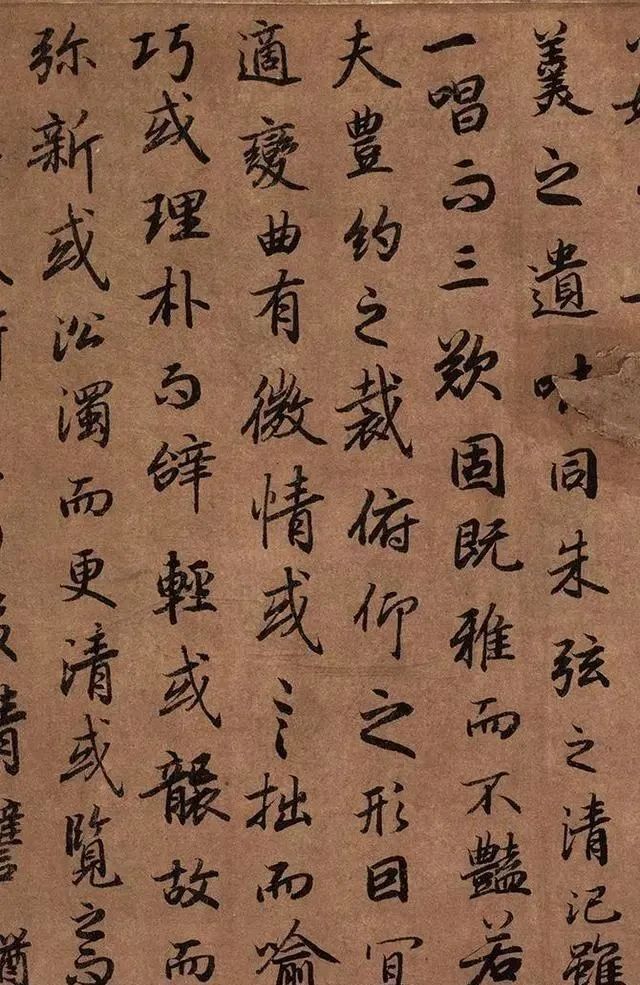 羹之遺味同朱弦之清汜雖
一唱而三歎固既雅而不豔若
夫豐約之裁俯仰之形因宜
適變曲有微情或言拙而喻
巧或理朴而辞輕或襲故而
弥新或沿濁而更清或覽之而